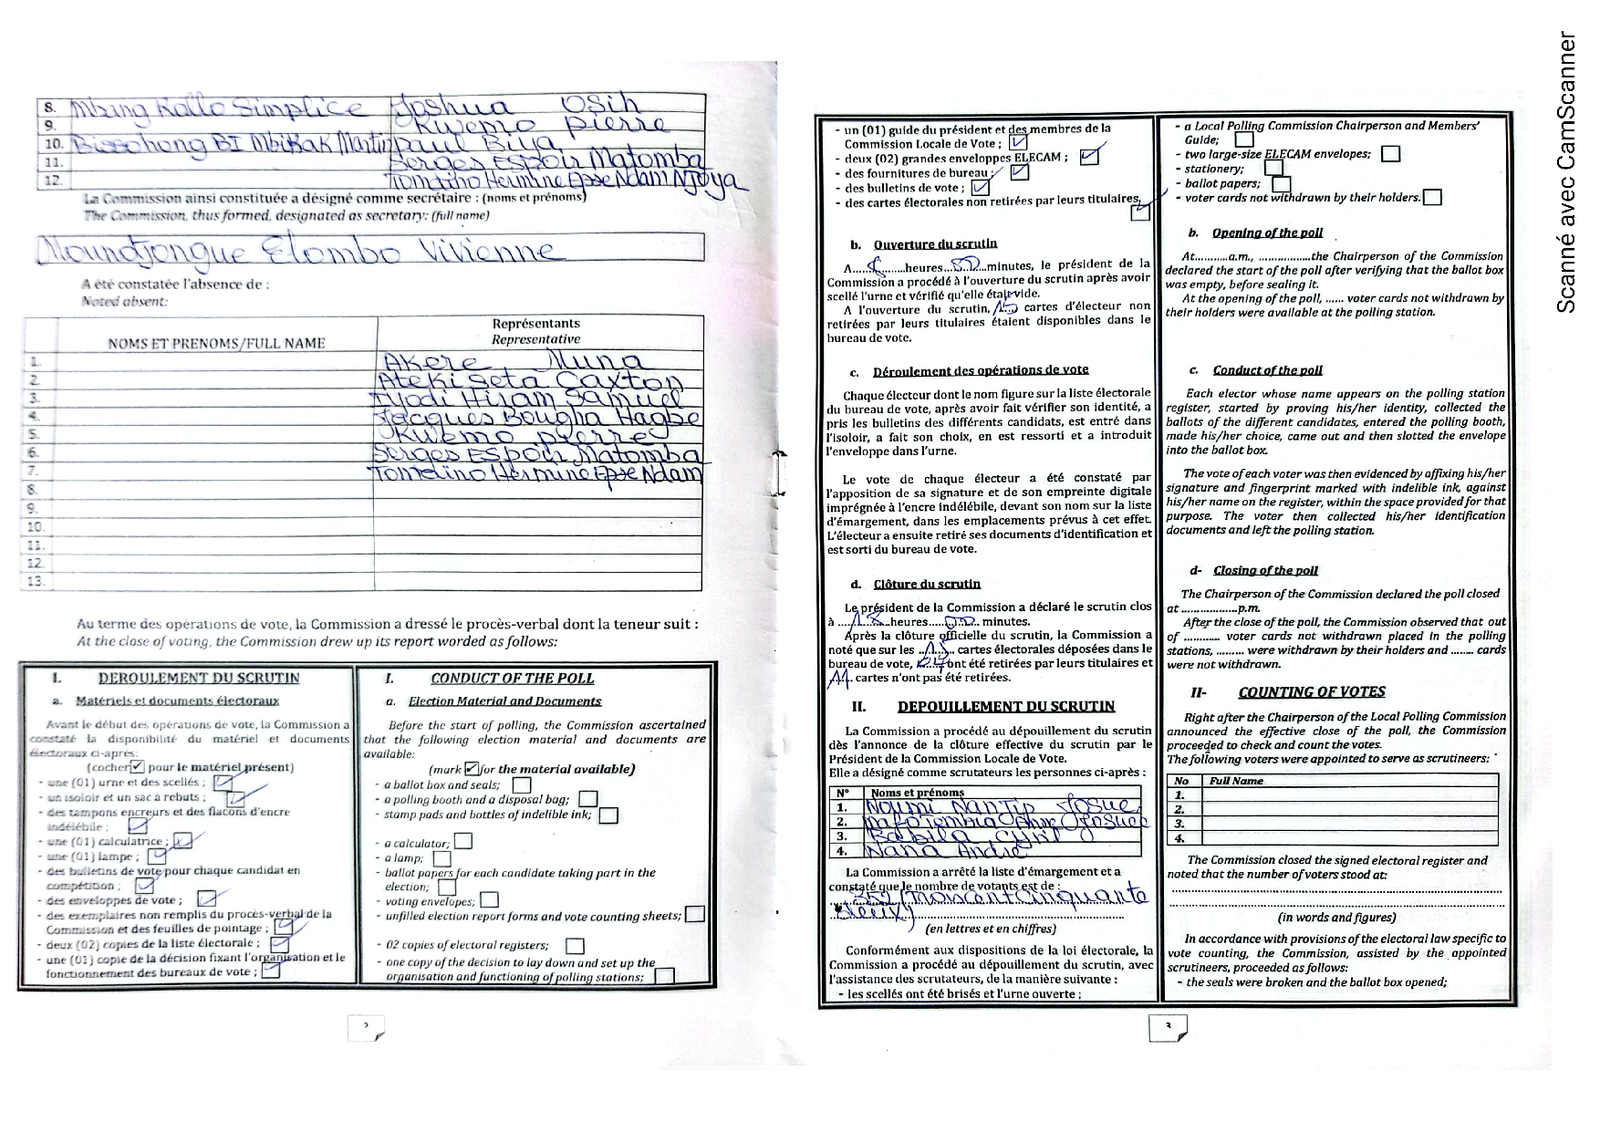 8. Mbang Kollo Simplice Joshua Osih
9. Kwemo Pierre
10. Bissohong BI Mbikak Martin Paul Biya
11. Serges ESPOIR Matomba
12. Tomaïno Hermine Epse Ndam Njoya
La Commission ainsi constituée a désigné comme secrétaire : (noms et prénoms)
The Commission, thus formed, designated as secretary: (full name)
Moundjongue Elombo Vivienne
A été constatée l'absence de :
Noted absent:
NOMS ET PRENOMS/FULL NAME
Représentants
Representative
1. Akere Muna
2. Ateki Seta Caxton
3. Iyodi Hiram Samuel
4. Jacques Bougha Hagbe
5. Kwemo pierre
6. Serges ESPOIR Matomba
7. Tomaïno Hermine Epse Ndam
8.
9.
10.
11.
12.
13.
Au terme des opérations de vote, la Commission a dressé le procès-verbal dont la teneur suit :
At the close of voting, the Commission drew up its report worded as follows:
I. DEROULEMENT DU SCRUTIN
a. Matériels et documents électoraux
Avant le début des opérations de vote, la Commission a
constaté la disponibilité du matériel et documents
électoraux ci-après:
(cocher ✓ pour le matériel présent)
- une (01) urne et des scellés ;
- un isoloir et un sac à rebuts ;
- des tampons encreurs et des flacons d'encre
indélébile ;
- une (01) calculatrice ;
- une (01) lampe ;
- des bulletins de vote pour chaque candidat en
compétition ;
- des enveloppes de vote ;
- des exemplaires non remplis du procès-verbal de la
Commission et des feuilles de pointage ;
- deux (02) copies de la liste électorale ;
- une (01) copie de la décision fixant l'organisation et le
fonctionnement des bureaux de vote ;
I. CONDUCT OF THE POLL
a. Election Material and Documents
Before the start of polling, the Commission ascertained
that the following election material and documents are
available:
(mark ✓ for the material available)
- a ballot box and seals;
- a polling booth and a disposal bag;
- stamp pads and bottles of indelible ink;
- a calculator;
- a lamp;
- ballot papers for each candidate taking part in the
election;
- voting envelopes;
- unfilled election report forms and vote counting sheets;
- 02 copies of electoral registers;
- one copy of the decision to lay down and set up the
organisation and functioning of polling stations;
2
- un (01) guide du président et des membres de la
Commission Locale de Vote ;
- deux (02) grandes enveloppes ELECAM ;
- des fournitures de bureau ;
- des bulletins de vote ;
- des cartes électorales non retirées par leurs titulaires.
b. Ouverture du scrutin
A......heures...00...minutes, le président de la
Commission a procédé à l'ouverture du scrutin après avoir
scellé l'urne et vérifié qu'elle était vide.
A l'ouverture du scrutin, 15 cartes d'électeur non
retirées par leurs titulaires étaient disponibles dans le
bureau de vote.
c. Déroulement des opérations de vote
Chaque électeur dont le nom figure sur la liste électorale
du bureau de vote, après avoir fait vérifier son identité, a
pris les bulletins des différents candidats, est entré dans
l'isoloir, a fait son choix, en est ressorti et a introduit
l'enveloppe dans l'urne.
Le vote de chaque électeur a été constaté par
l'apposition de sa signature et de son empreinte digitale
imprégnée à l'encre indélébile, devant son nom sur la liste
d'émargement, dans les emplacements prévus à cet effet.
L'électeur a ensuite retiré ses documents d'identification et
est sorti du bureau de vote.
d. Clôture du scrutin
Le président de la Commission a déclaré le scrutin clos
à ...18...heures...00... minutes.
Après la clôture officielle du scrutin, la Commission a
noté que sur les ..15... cartes électorales déposées dans le
bureau de vote, ont été retirées par leurs titulaires et
11. cartes n'ont pas été retirées.
II. DEPOUILLEMENT DU SCRUTIN
La Commission a procédé au dépouillement du scrutin
dès l'annonce de la clôture effective du scrutin par le
Président de la Commission Locale de Vote.
Elle a désigné comme scrutateurs les personnes ci-après :
N° Noms et prénoms
1. Noumi Nantip Josue
2. Anne Josuee
3. Babila Cyril
4. Nana André
La Commission a arrêté la liste d'émargement et a
constaté que le nombre de votants est de :
352 (Troiscent cinquante
deux)
(en lettres et en chiffres)
Conformément aux dispositions de la loi électorale, la
Commission a procédé au dépouillement du scrutin, avec
l'assistance des scrutateurs, de la manière suivante :
- les scellés ont été brisés et l'urne ouverte ;
- a Local Polling Commission Chairperson and Members'
Guide;
- two large-size ELECAM envelopes;
- stationery;
- ballot papers;
- voter cards not withdrawn by their holders.
b. Opening of the poll
At...........a.m., ................the Chairperson of the Commission
declared the start of the poll after verifying that the ballot box
was empty, before sealing it.
At the opening of the poll, ...... voter cards not withdrawn by
their holders were available at the polling station.
c. Conduct of the poll
Each elector whose name appears on the polling station
register, started by proving his/her identity, collected the
ballots of the different candidates, entered the polling booth,
made his/her choice, came out and then slotted the envelope
into the ballot box.
The vote of each voter was then evidenced by affixing his/her
signature and fingerprint marked with indelible ink, against
his/her name on the register, within the space provided for that
purpose. The voter then collected his/her identification
documents and left the polling station.
d- Closing of the poll
The Chairperson of the Commission declared the poll closed
at ..................p.m.
After the close of the poll, the Commission observed that out
of ........... voter cards not withdrawn placed in the polling
stations, ......... were withdrawn by their holders and ........ cards
were not withdrawn.
II- COUNTING OF VOTES
Right after the Chairperson of the Local Polling Commission
announced the effective close of the poll, the Commission
proceeded to check and count the votes.
The following voters were appointed to serve as scrutineers:
No Full Name
1.
2.
3.
4.
The Commission closed the signed electoral register and
noted that the number of voters stood at:
(in words and figures)
In accordance with provisions of the electoral law specific to
vote counting, the Commission, assisted by the appointed
scrutineers, proceeded as follows:
- the seals were broken and the ballot box opened;
3
Scanné avec CamScanner